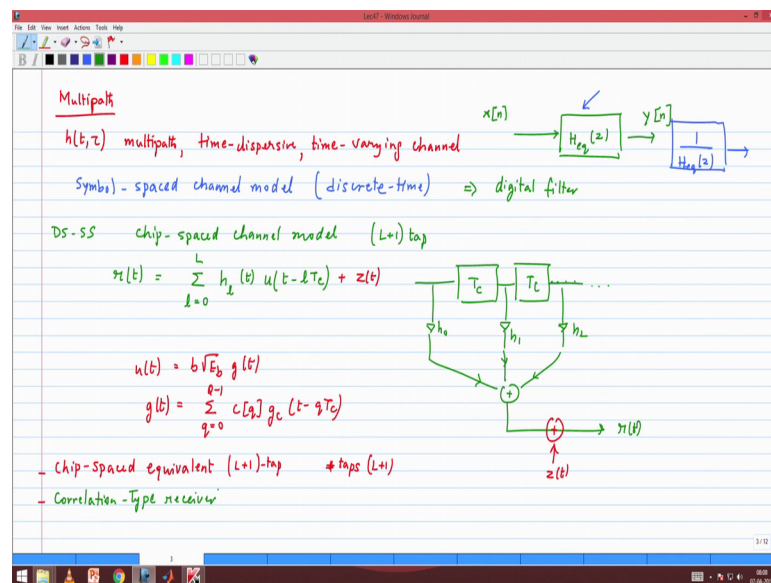 Lec47 - Windows Journal
File Edit View Insert Actions Tools Help
B I
Multipath
h(t,τ) multipath, time-dispersive, time-varying channel
x[n] H_eq(z) y[n] 1/H_eq(z)
Symbol-spaced channel model (discrete-time) ⇒ digital filter
DS-SS chip-spaced channel model (L+1) tap
r(t) = Σ_{l=0}^{L} h_l(t) u(t-lT_c) + z(t)
T_c T_c ....
h_0 h_1 h_2
+
u(t) = b√E_b g(t)
g(t) = Σ_{q=0}^{Q-1} c[q] g_c(t-qT_c)
+ r(t)
z(t)
- Chip-spaced equivalent (L+1)-tap # taps (L+1)
- Correlation-Type receiver
3/12
3
08:08